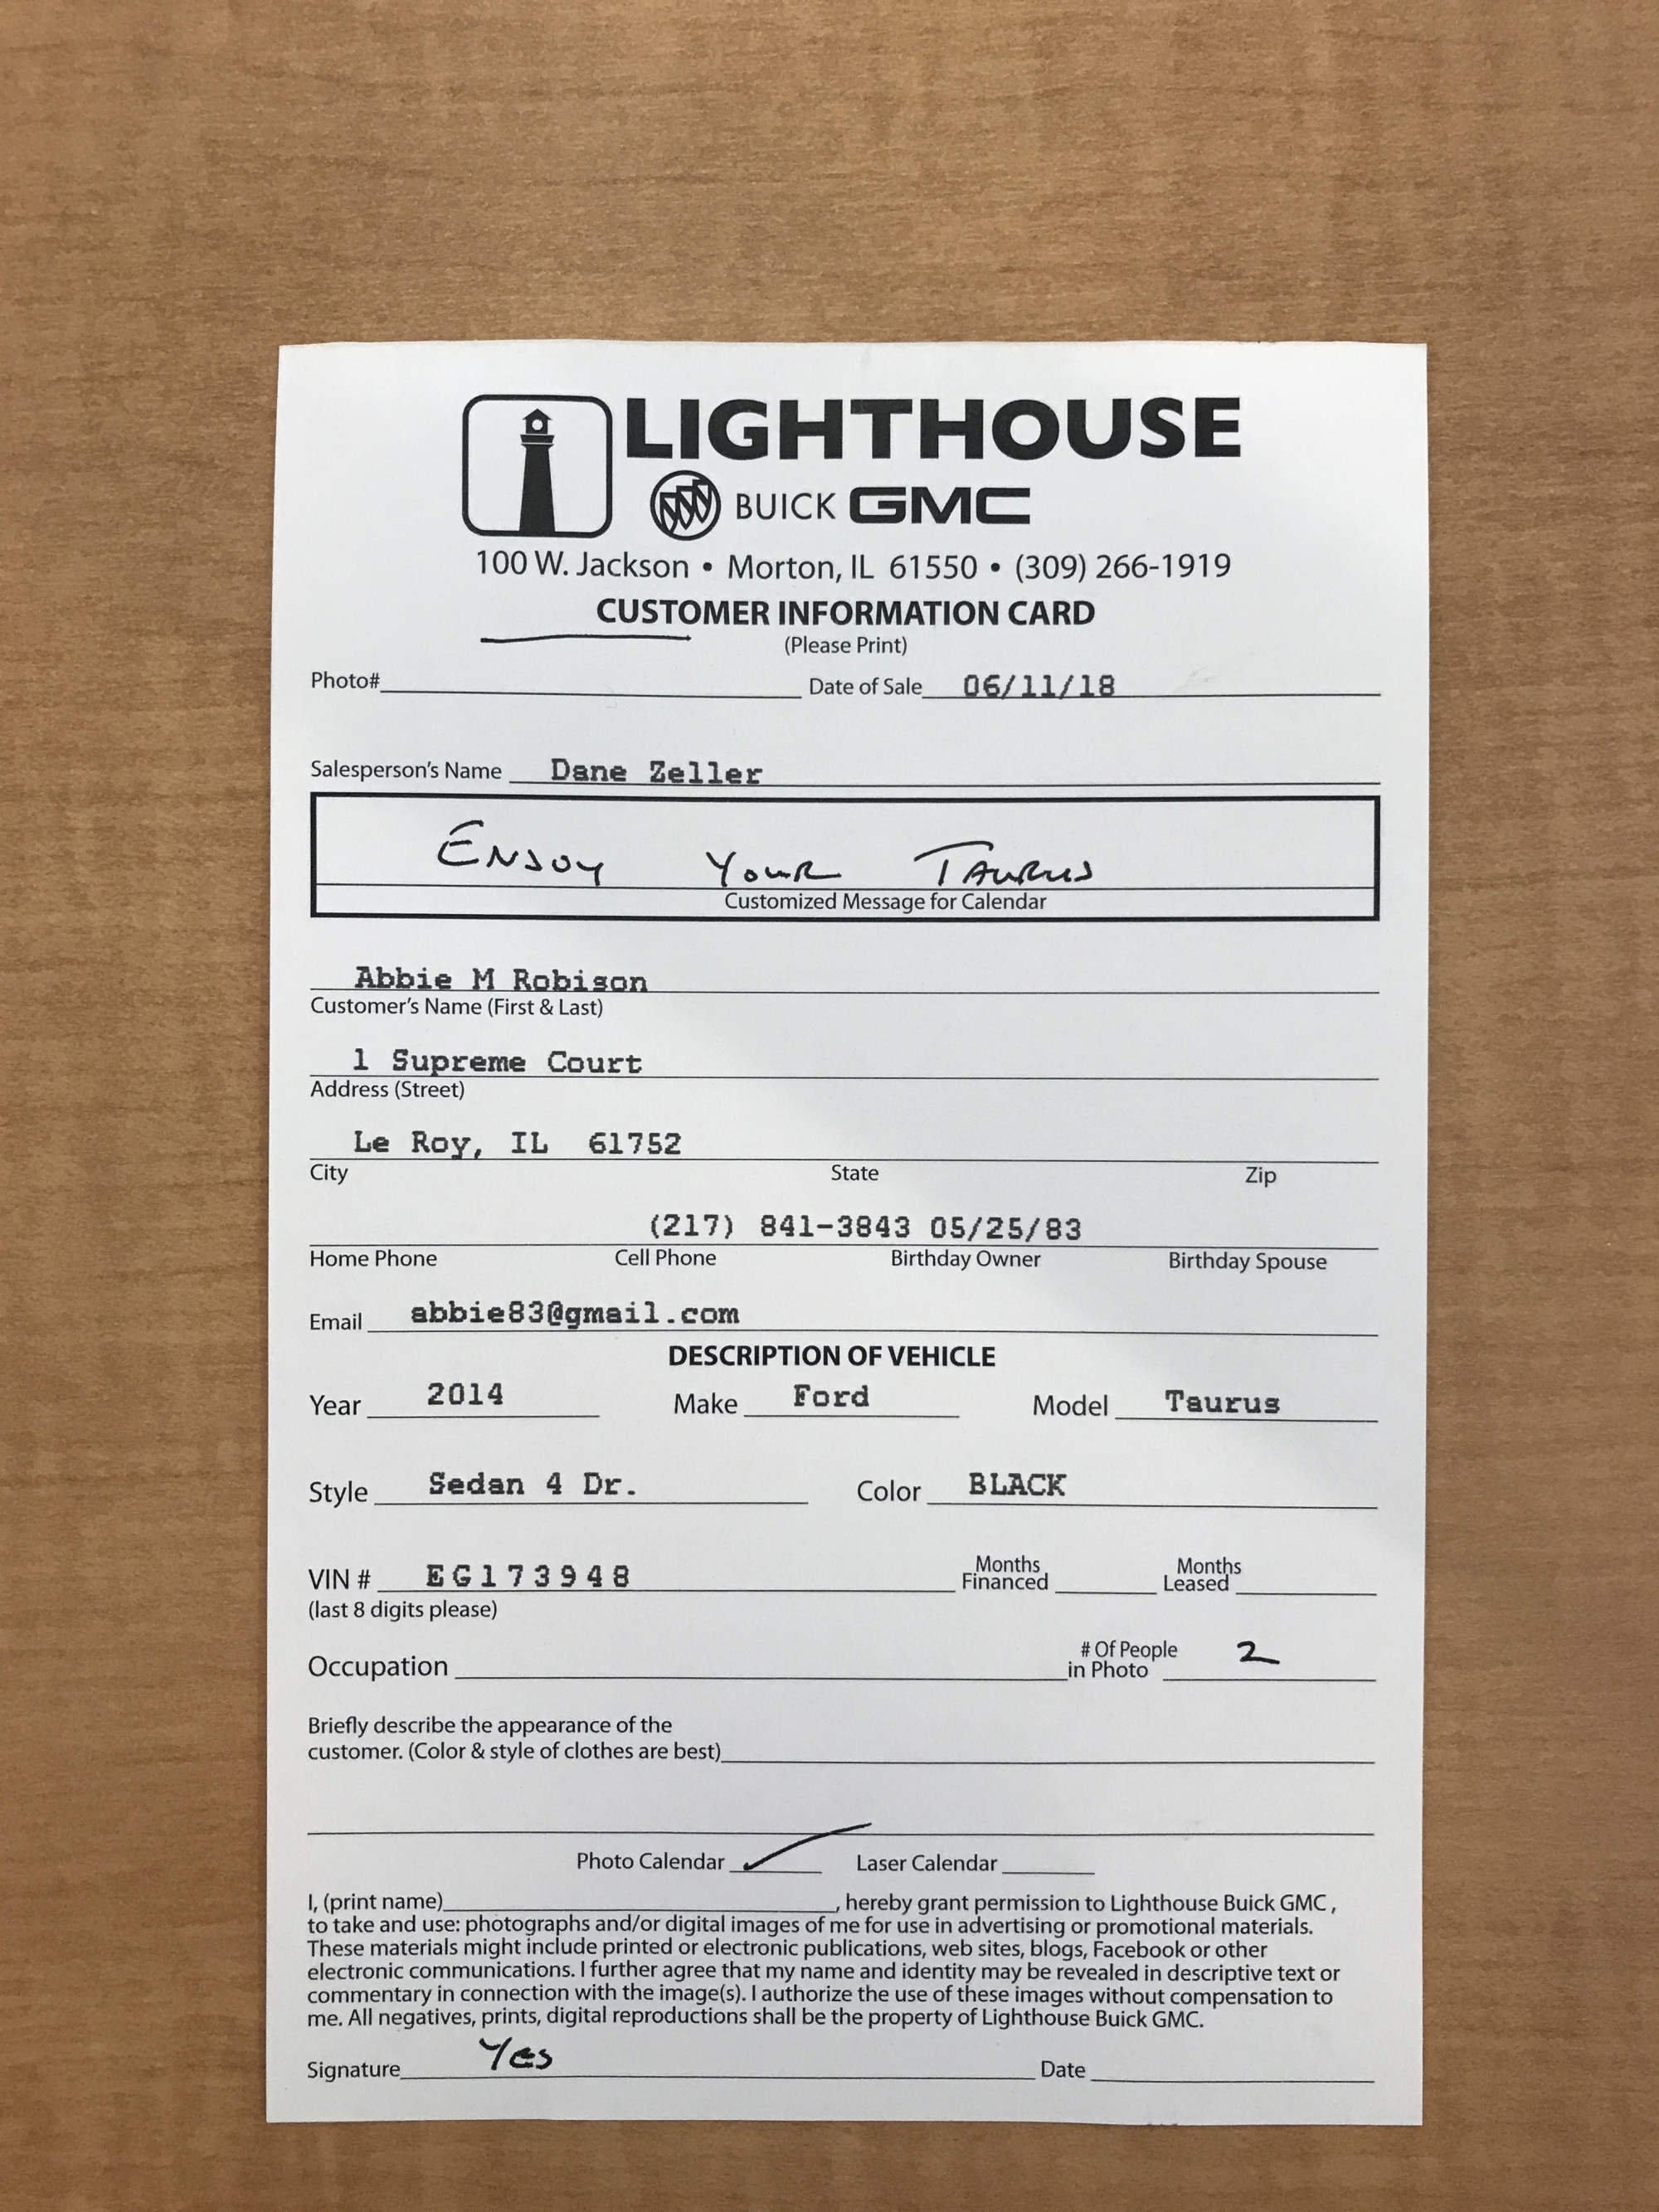 LIGHTHOUSE
BUICK GMC
100 W. Jackson • Morton, IL 61550 • (309) 266-1919
CUSTOMER INFORMATION CARD
(Please Print)
Photo# Date of Sale 06/11/18
Salesperson's Name Dane Zeller
ENJOY YOUR TAURUS
Customized Message for Calendar
Abbie M Robison
Customer's Name (First & Last)
1 Supreme Court
Address (Street)
Le Roy, IL 61752
City State Zip
(217) 841-3843 05/25/83
Home Phone Cell Phone Birthday Owner Birthday Spouse
Email abbie83@gmail.com
DESCRIPTION OF VEHICLE
Year 2014 Make Ford Model Taurus
Style Sedan 4 Dr. Color BLACK
VIN # EG173948 Months Financed Months Leased
(last 8 digits please)
Occupation # Of People in Photo 2
Briefly describe the appearance of the
customer. (Color & style of clothes are best)
Photo Calendar Laser Calendar
I, (print name), hereby grant permission to Lighthouse Buick GMC,
to take and use: photographs and/or digital images of me for use in advertising or promotional materials.
These materials might include printed or electronic publications, web sites, blogs, Facebook or other
electronic communications. I further agree that my name and identity may be revealed in descriptive text or
commentary in connection with the image(s). I authorize the use of these images without compensation to
me. All negatives, prints, digital reproductions shall be the property of Lighthouse Buick GMC.
Signature Yes Date